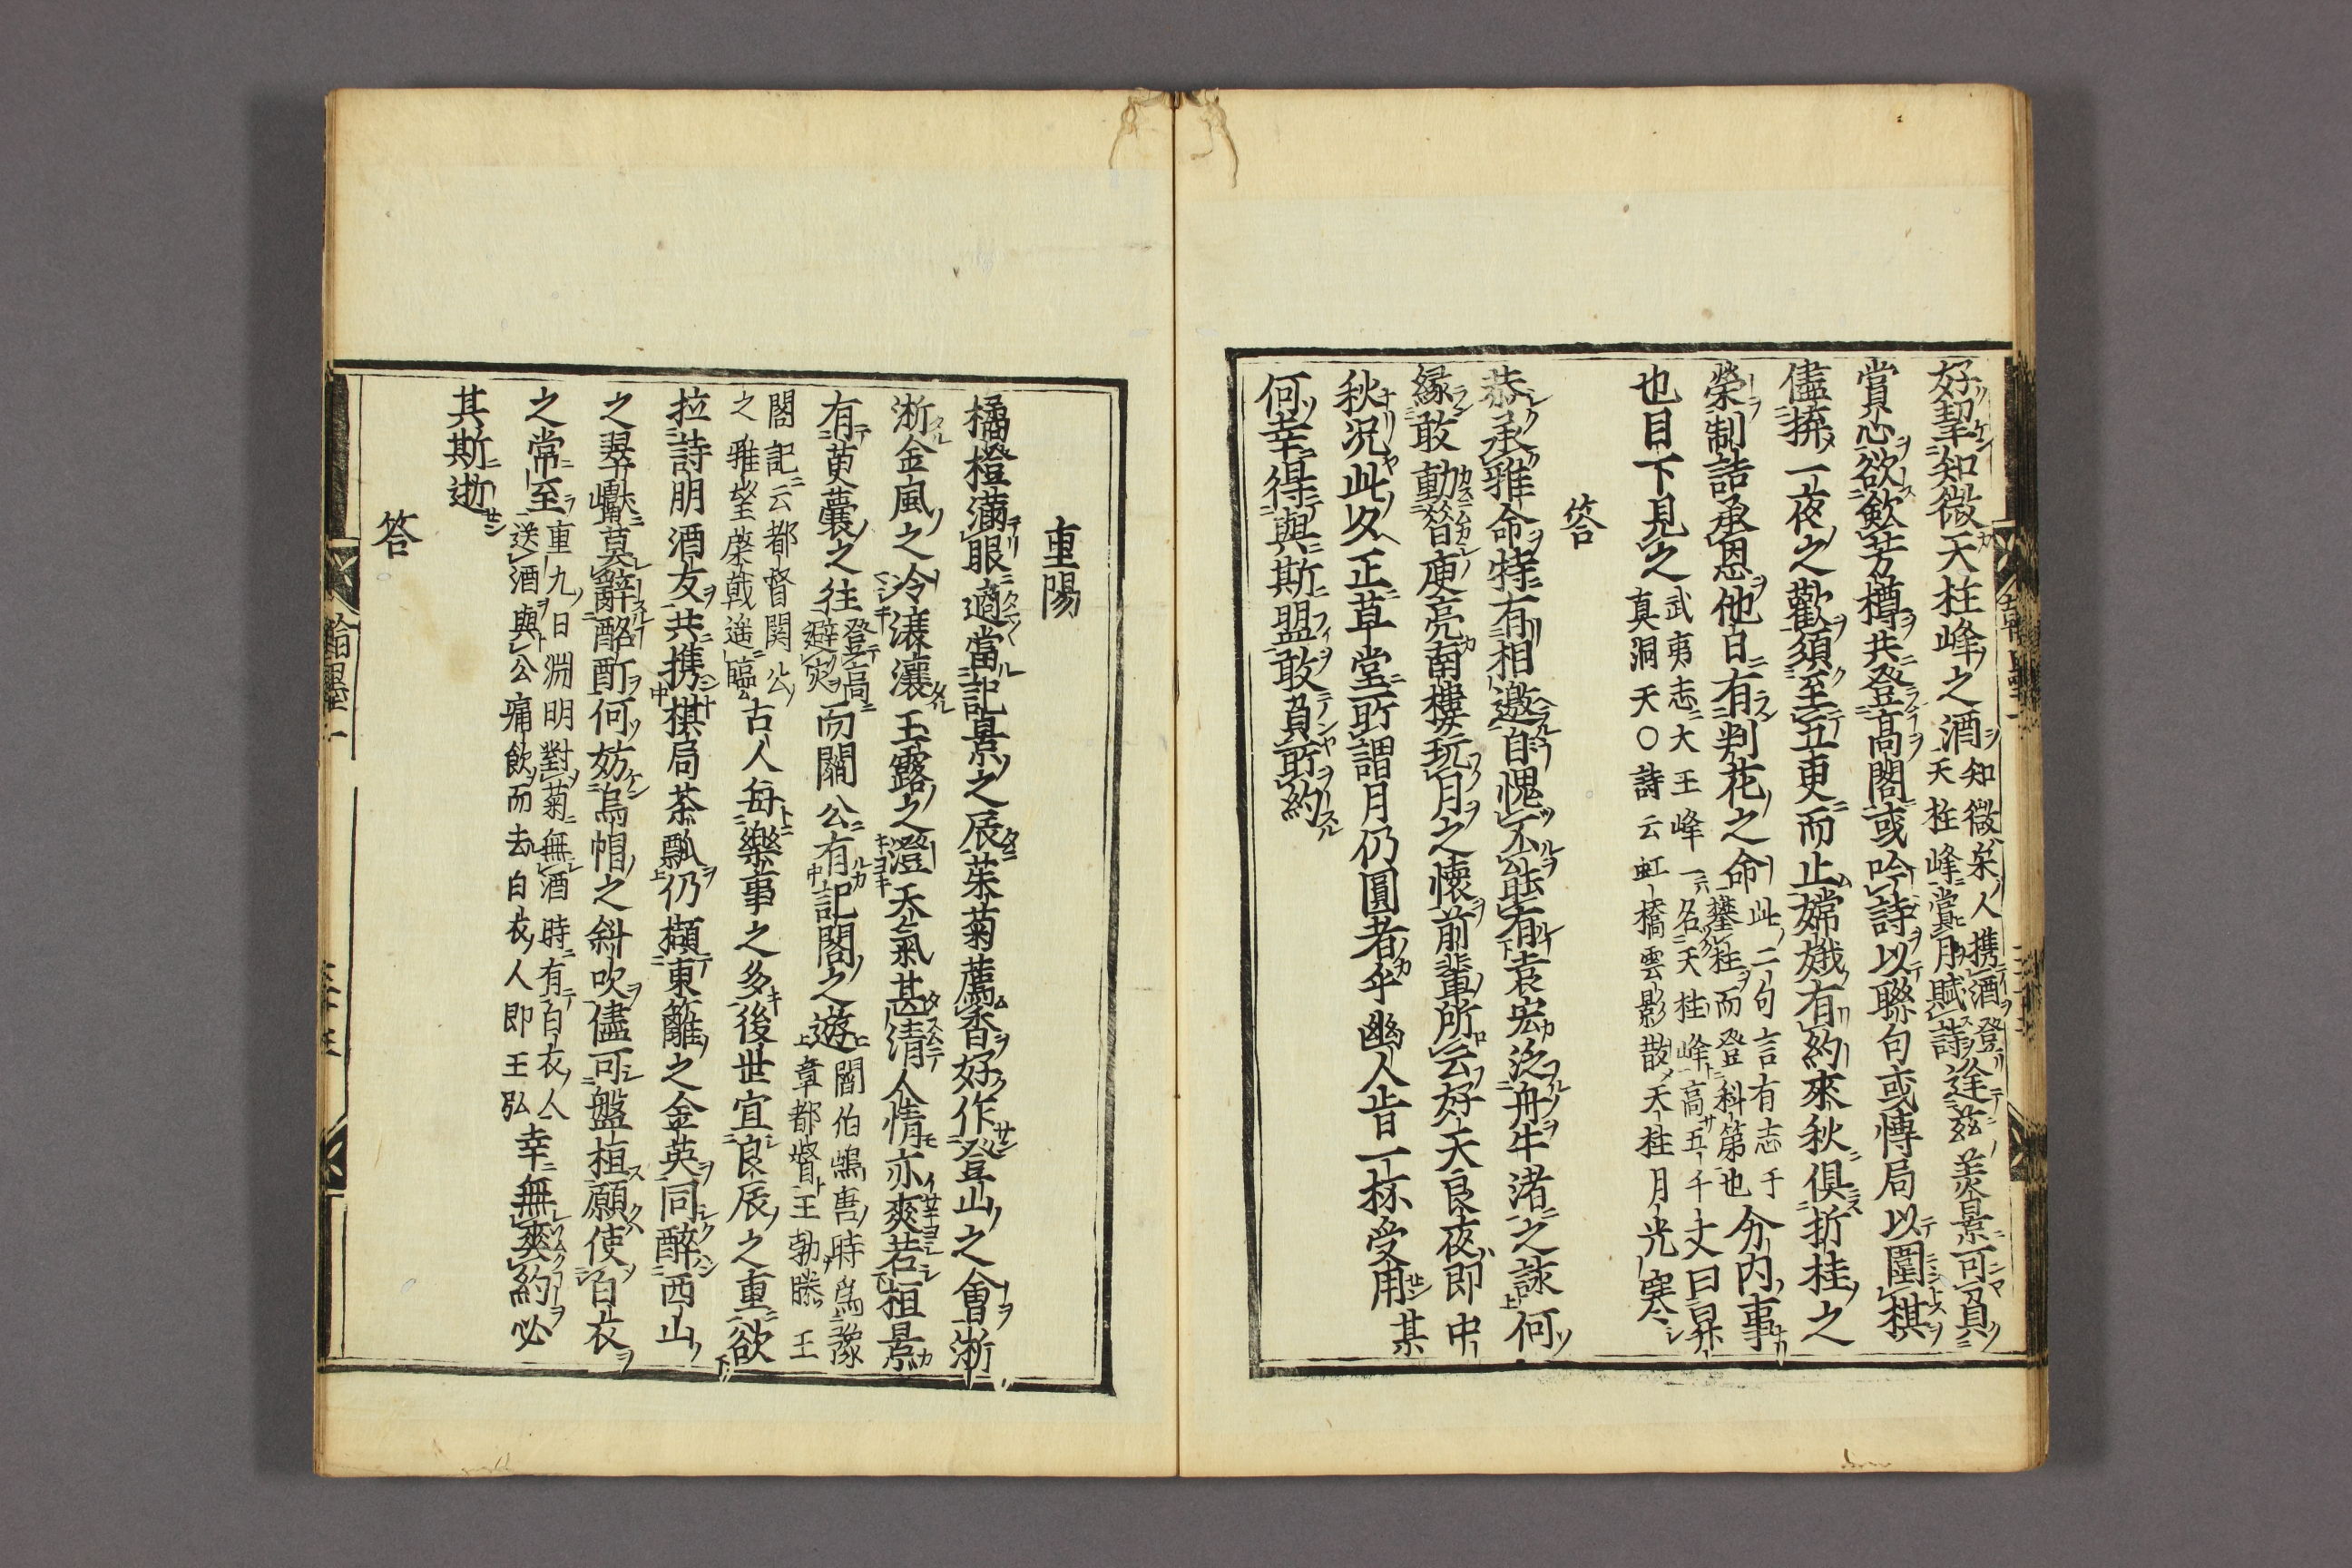 好挈知微天柱峰之酒知微名人携酒登
天柱峰賞月賦詩逢茲羨景可負
賞心欲歛芳樽共登高閣或吟詩以聯句或慱局以圍棋
儘拚一夜之歡須至五更而止嫦娥有約來秋俱折桂之
榮制詰承恩他日有判花之命此二句言有志于
攀桂而登科第也分内事
也目下見之武夷志大王峰一名天柱峰高五千丈曰昇
真洞天〇詩云虹橋雲影散天柱月光寒
答
恭承雅命特有相邀自愧不能有袁宏泛舟牛渚之詠何
緣敢動晉庾亮南樓玩月之懷前輩所云好天良夜即中
秋況此夕正草堂所謂月仍圓者乎幽人肯一杯受用某
何幸得與斯盟敢負所約
重陽
橘橙滿眼適當記景之辰茱菊薦香好作登山之會淅
淅金風之冷瀼瀼玉露之澄天氣甚清人情亦爽若桓景
有萸囊之往登高
避灾而閻公有記閣之遊閻伯嶼唐時爲豫
章都督王勃滕王
閣記云都督閻公
之雅望棨戟遙臨古人每樂事之多後世宜良辰之重欲
拉詩朋酒友共携棋局茶瓢仍擷東籬之金英同醉西山
之翠巘莫辭酩酊何妨烏帽之斜吹儘可盤桓願使白衣
之常至重九日淵明對菊無酒時有白衣人
送酒與公痛飲而去白衣人即王弘幸無爽約必
其斯逝
答